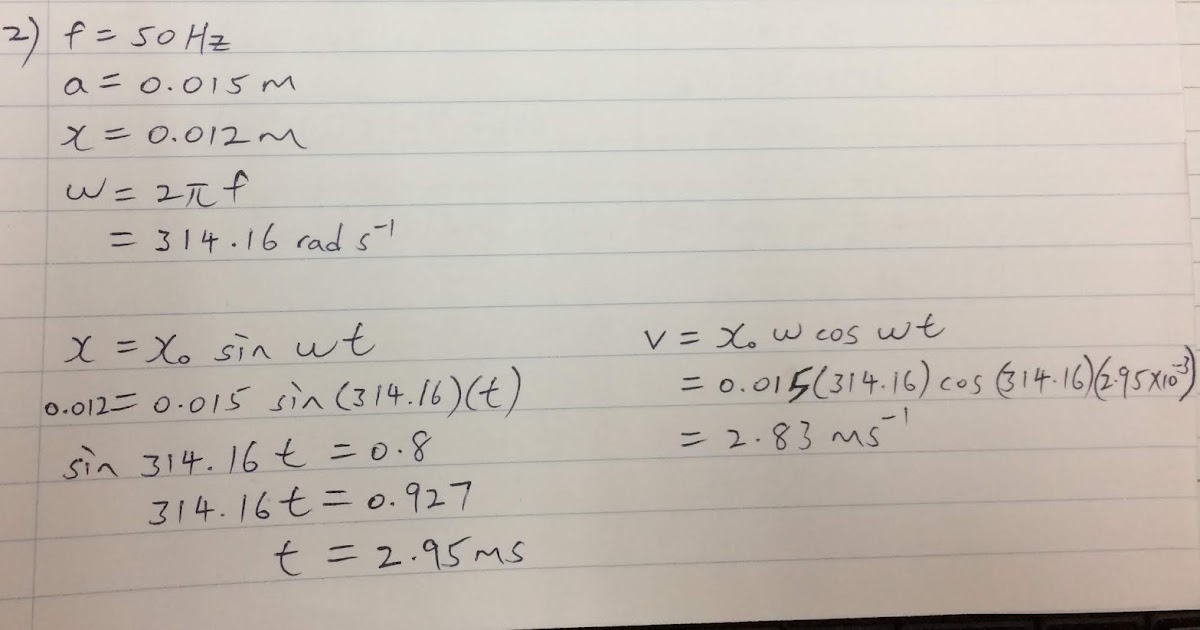 2) f = 50 Hz
a = 0.015 m
x = 0.012 m
w = 2πf
= 314.16 rad s⁻¹
x = x₀ sin wt
0.012 = 0.015 sin (314.16)(t)
sin 314.16 t = 0.8
314.16 t = 0.927
t = 2.95 ms
v = x₀ w cos wt
= 0.015(314.16) cos (314.16)(2.95×10⁻³)
= 2.83 ms⁻¹